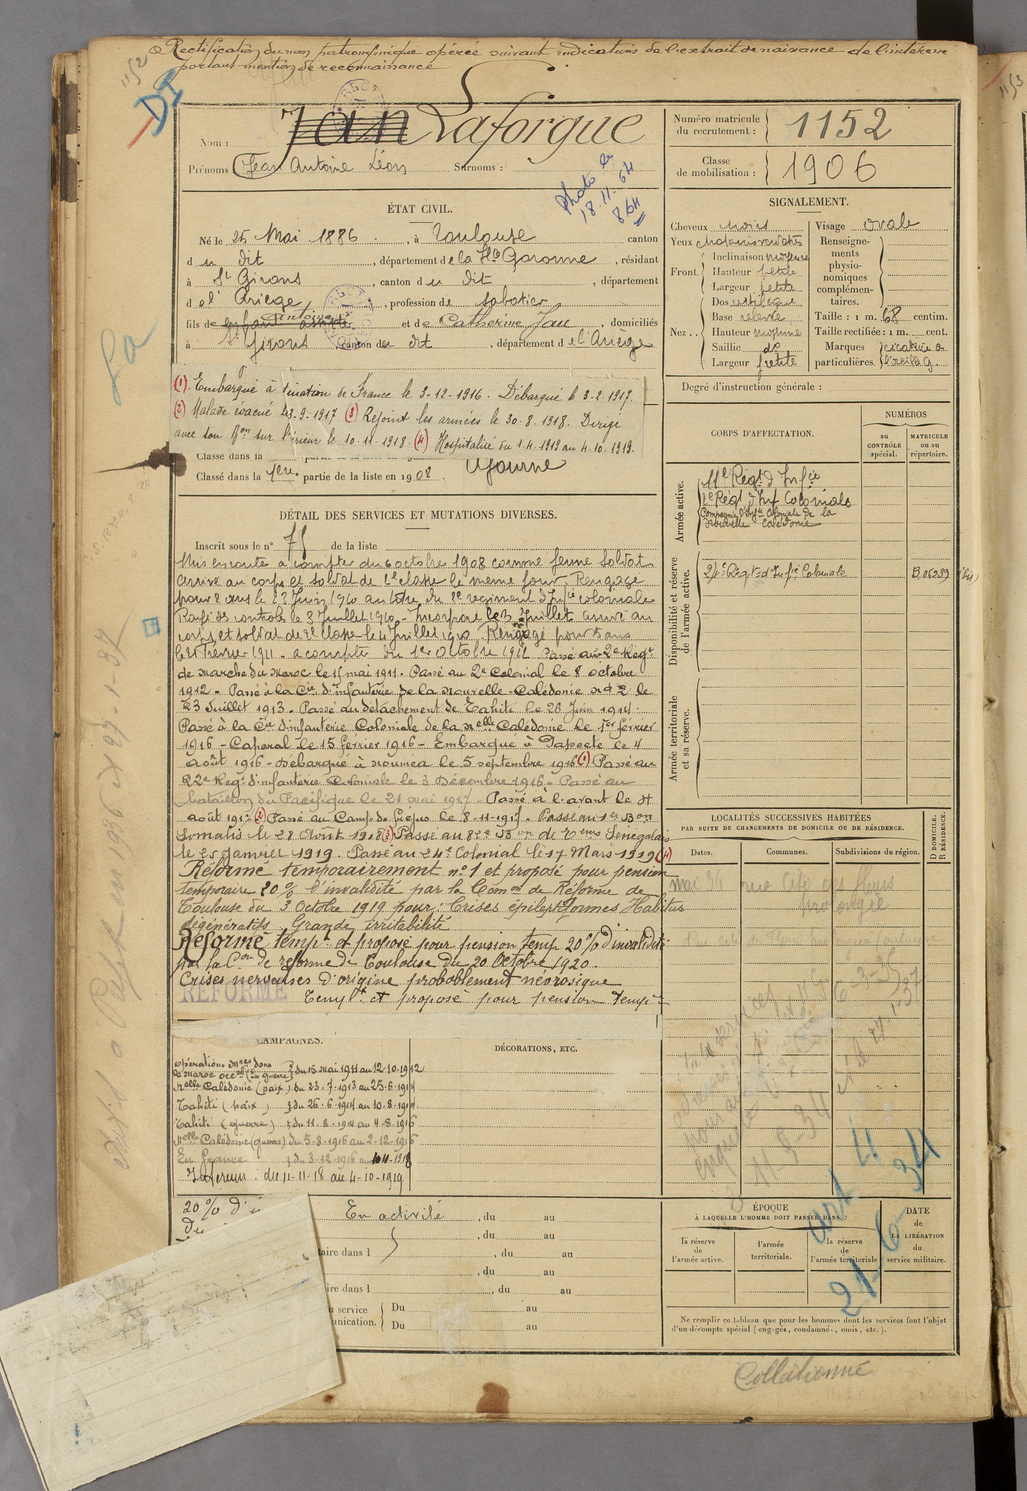 Rectification du nom patronymique opérée suivant indications de l'extrait de naissance de l'intéressé
portant mention de reconnaissance
1152
Nom : Jau Laforgue
Prénoms Jean Antoine Léon Surnoms :
Photo le
18.11.64
864
Numéro matricule
du recrutement : 1152
Classe
de mobilisation : 1906
ÉTAT CIVIL.
Né le 25 Mai 1886, à Toulouse canton
du dit, département de la Hte Garonne, résidant
à St Girons, canton du dit, département
de l'Ariège, profession de sabotier
fils de enfant assisté Antoine et de Catherine Jau, domiciliés
à St Girons canton du dit, département de l'Ariège
(1) Embarqué à destination de France le 3-12-1916. Débarqué le 3-2-1917.
(2) Malade évacué 23-9-1917 (3) Rejoint les armées le 30.8.1918. Dirigé
avec son Bon sur l'intérieur le 10-11-1918. (4) Hospitalisé du 1.4.1919 au 4.10.1919.
Classé dans la
Classé dans la 1ère partie de la liste en 1908 Ajourné
SIGNALEMENT.
Cheveux noirs Visage ovale
Yeux
Front. Inclinaison moyenne
Hauteur petite
Largeur petite
Nez . . Dos rectiligne
Base relevée
Hauteur moyenne
Saillie do
Largeur petite
Renseignements
physionomiques
complémentaires.
Taille : 1 m. 68 centim.
Taille rectifiée : 1 m. cent.
Marques particulières. cicatrice à l'oreille g.
Degré d'instruction générale :
CORPS D'AFFECTATION.
NUMÉROS
DU CONTRÔLE spécial.
MATRICULE OU AU répertoire.
Armée active.
Régt d'Infie
2e Régt d'Inf Coloniale
Compagnie d'Infie Coloniale de la
Nouvelle Calédonie
Disponibilité et réserve
de l'armée active.
24e Régt d'Infie Coloniale
Armée territoriale
et sa réserve.
DÉTAIL DES SERVICES ET MUTATIONS DIVERSES.
Inscrit sous le no 75 de la liste
Mis en route à compter du 6 octobre 1908 comme jeune soldat
arrivé au corps et soldat de 2e classe le même jour, Rengagé
pour 2 ans le 23 Juin 1910 au titre du 2e régiment d'Infie coloniale
Rayé des contrôles le 3 Juillet 1910. Incorporé le 3 Juillet arrivé au
corps et soldat de 2e classe le 4 Juillet 1910. Rengagé pour 5 ans
le Février 1911 à compter du 1er Octobre 1912. Passé au 2e Régt
de Marche du Maroc le 15 mai 1911. Passé au 2e Colonial le 8 octobre
1912 - Passé à la Cie d'infanterie de la Nouvelle-Calédonie le
23 Juillet 1913. Passé au détachement de Tahiti le 26 Juin 1914.
Passé à la Cie d'infanterie Coloniale de la Nelle Calédonie le 1er février
1916 - Caporal le 15 février 1916 - Embarqué à Papeete le 4
août 1916 - Débarqué à Nouméa le 5 septembre 1916 (1) Passé au
22e Régt d'infanterie Coloniale le 3 Décembre 1916 - Passé au
bataillon du Pacifique le 21 mai 1917. Passé à l'avant le
août 1917 (2) Passé au Camp de Fréjus le 8-11-1917. Passé au 1er Bon
Somalis le 28 Août 1918 (3) Passé au 82e Bon de Tirs Sénégalais
le 25 Janvier 1919. Passé au 24e Colonial le 17 Mars 1919 (4)
Réformé temporairement no 1 et proposé pour pension
temporaire 20 % d'invalidité par la Comon de Réforme de
Toulouse du 3 Octobre 1919 pour : Crises épileptiformes Habitus
dégénératifs Grande irritabilité
Réformé tempt et proposé pour pension temp 20 % d'invalidité
par la Con de réforme de Toulouse du 20 Octobre 1920.
Crises nerveuses d'origine probablement névrosique
RÉFORMÉ Templt et proposé pour pension temp
LOCALITÉS SUCCESSIVES HABITÉES
PAR SUITE DE CHANGEMENTS DE DOMICILE OU DE RÉSIDENCE.
Dates. Communes. Subdivisions de région.
D DOMICILE.
R RÉSIDENCE.
mai 34 rue Cité des fleurs
prolongée
CAMPAGNES.
DÉCORATIONS, ETC.
Opérations Mres dans
le Maroc occal (en guerre) du 15 mai 1911 au 12-10-1912
Nelle Calédonie (paix) du 23-7-1913 au 25-6-1914
Tahiti (paix) du 26-6-1914 au 10-8-1914
Tahiti (guerre) du 11-8-1914 au 4-8-1916
Nelle Calédonie (guerre) du 5-8-1916 au 2-12-1916
En France du 3-12-1916 au 10-11-1918
Intérieur : du 11-11-18 au 4-10-1919
20 % d'i
En activité, du au
taire dans l, du au
, du au
ire dans l, du au
service
Du au
Du au
ÉPOQUE
À LAQUELLE L'HOMME DOIT PASSER DANS :
la réserve de l'armée active.
l'armée territoriale.
la réserve de l'armée territoriale
DATE de LA LIBÉRATION du service militaire.
Ne remplir ce tableau que pour les hommes dont les services font l'objet
d'un décompte spécial (engagés, condamnés, omis, etc.).
Collationné